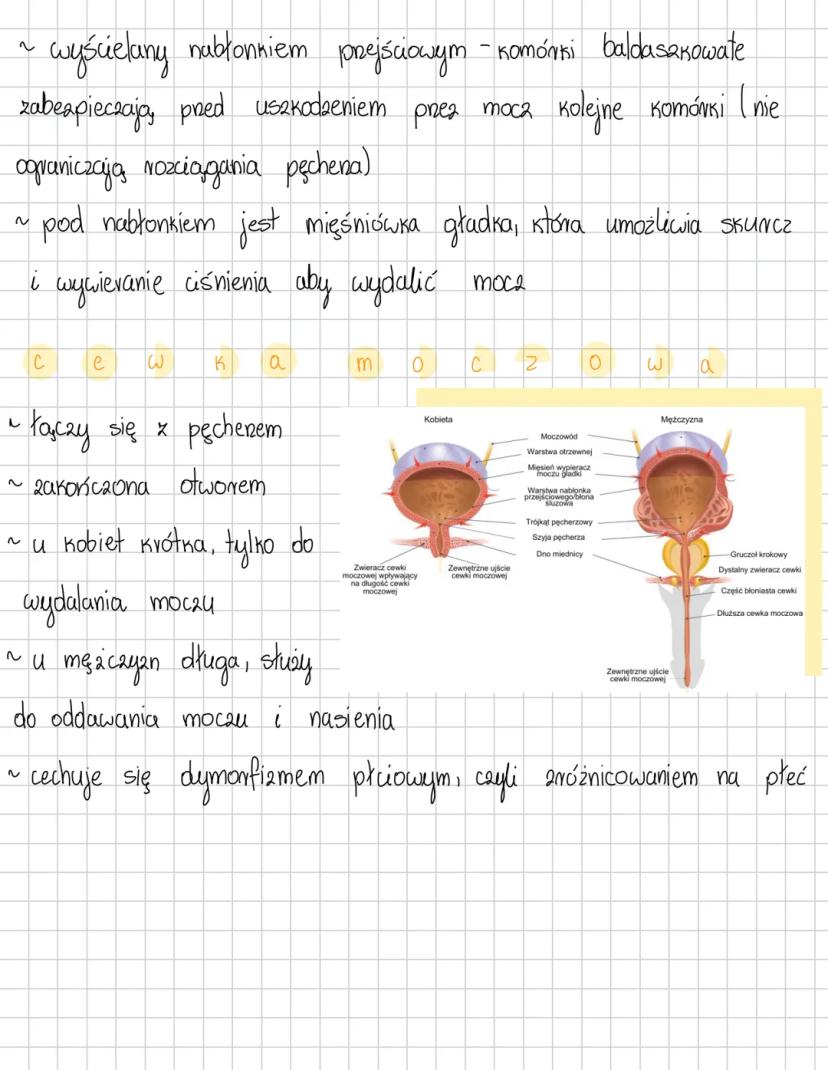 ~ wyścielany nabłonkiem przejściowym - komórki baldaszkowate
zabezpieczają przed uszkodzeniem przez mocz kolejne komórki (nie
ograniczają rozciągania pęcherza)
~ pod nabłonkiem jest mięśniówka gładka, która umożliwia skurcz
i wywieranie ciśnienia aby wydalić mocz
cewka moczowa
~ łączy się z pęcherzem
~ zakończona otworem
~ u kobiet krótka, tylko do
wydalania moczu
~ u mężczyzn długa, służy
do oddawania moczu i nasienia
~ cechuje się dymorfizmem płciowym, czyli zróżnicowaniem na płeć
Kobieta
Mężczyzna
Moczowód
Warstwa otrzewnej
Mięsień wypieracz
moczu gładki
Warstwa nabłonka
przejściowego/błona
śluzowa
Trójkąt pęcherzowy
Szyja pęcherza
Dno miednicy
Zwieracz cewki
moczowej wpływający
na długość cewki
moczowej
Zewnętrzne ujście
cewki moczowej
Gruczoł krokowy
Dystalny zwieracz cewki
Część błoniasta cewki
Dłuższa cewka moczowa
Zewnętrzne ujście
cewki moczowej